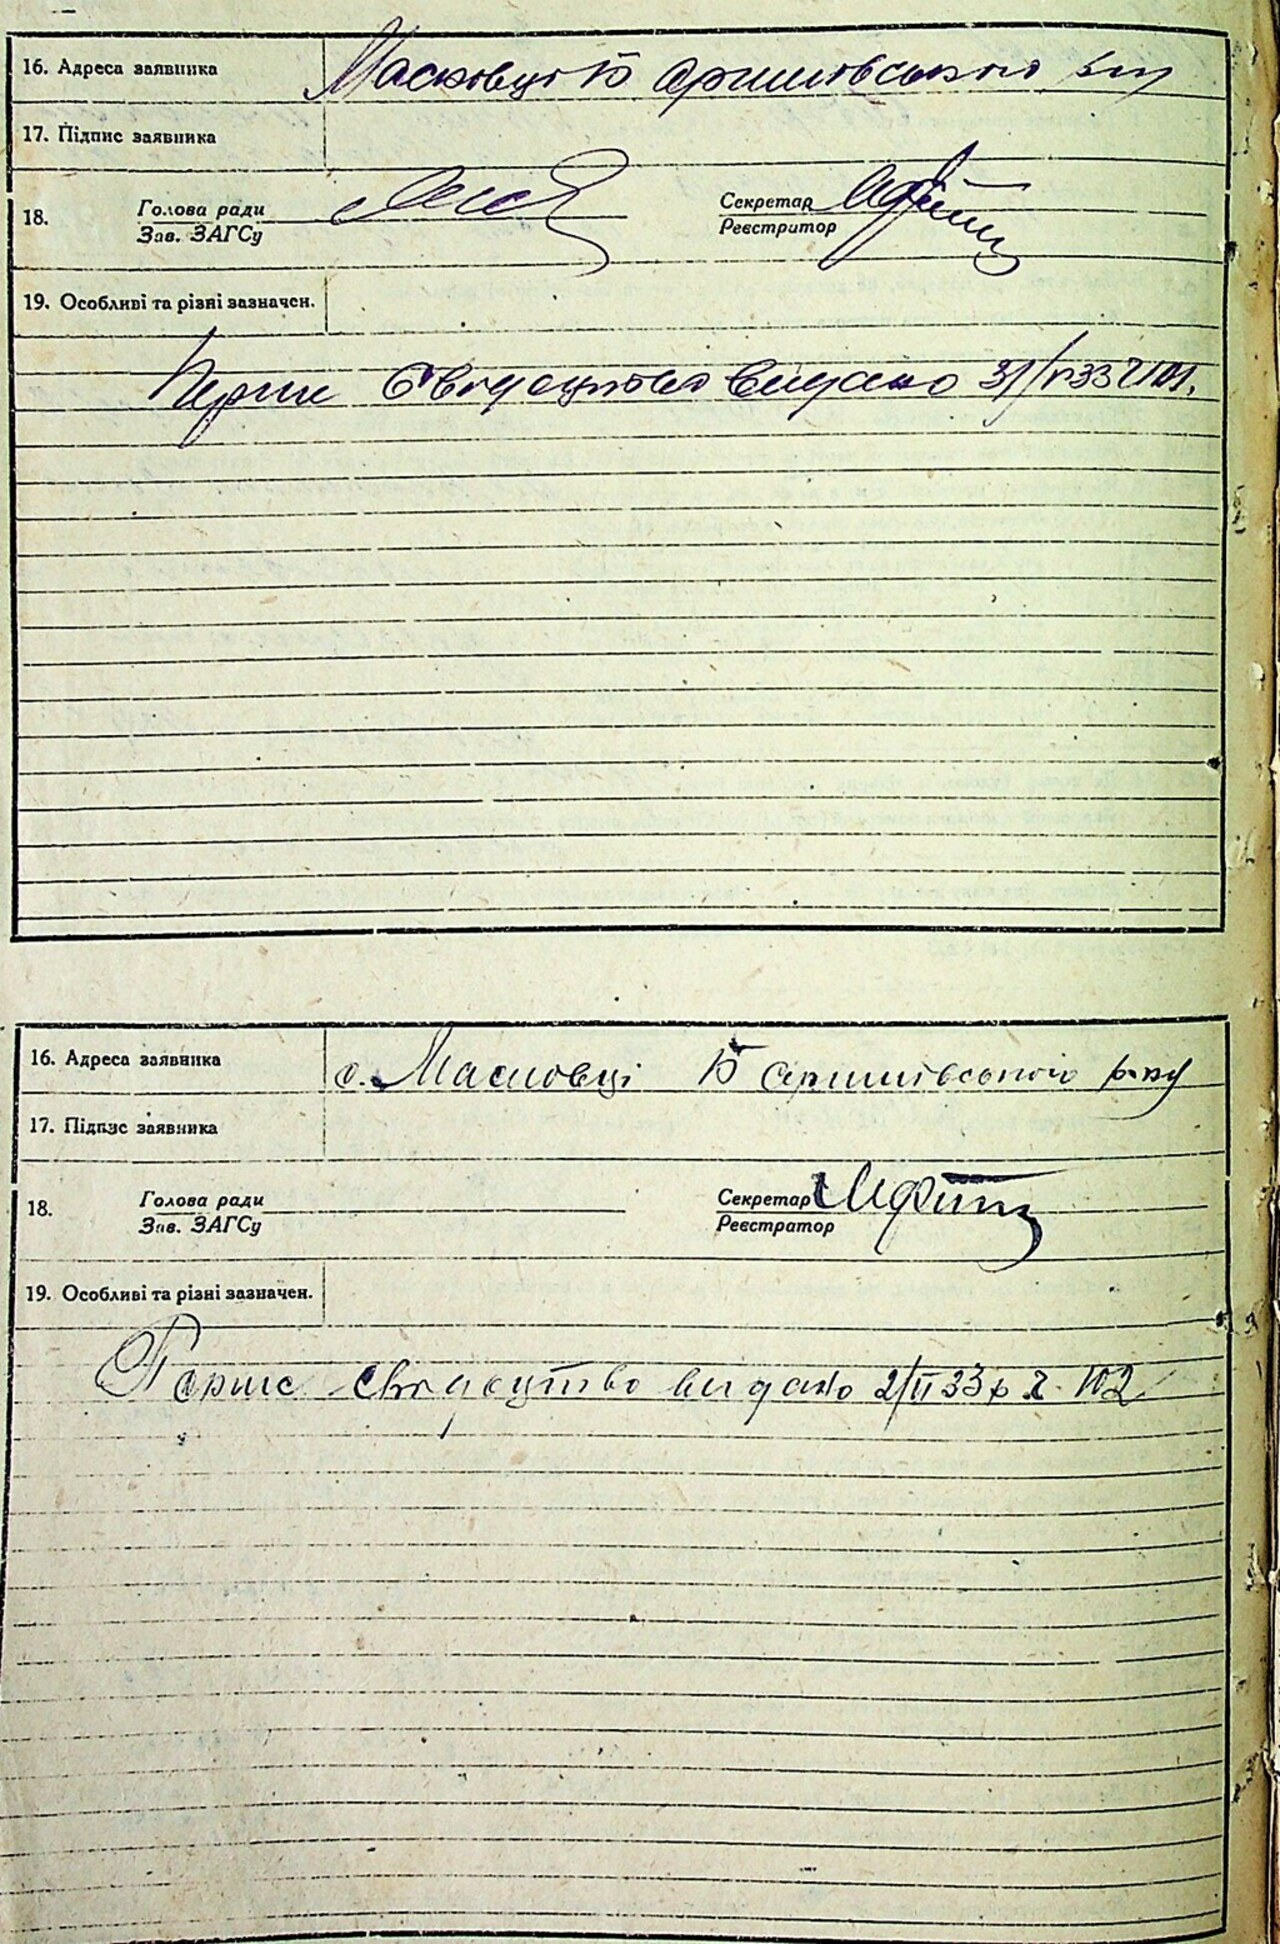 16. Адреса заявника Масковці Баришівського р-ну
17. Підпис заявника
18. Голова ради Секретар
Зав. ЗАГСу Реєстратор
19. Особливі та різні зазначен.
Перше Свідоцтво видано 31/ 33 101.
16. Адреса заявника с. Масковці Баришівського р-ну
17. Підпис заявника
18. Голова ради Секретар
Зав. ЗАГСу Реєстратор
19. Особливі та різні зазначен.
Перше свідоцтво видано 2/II 33 р. 102